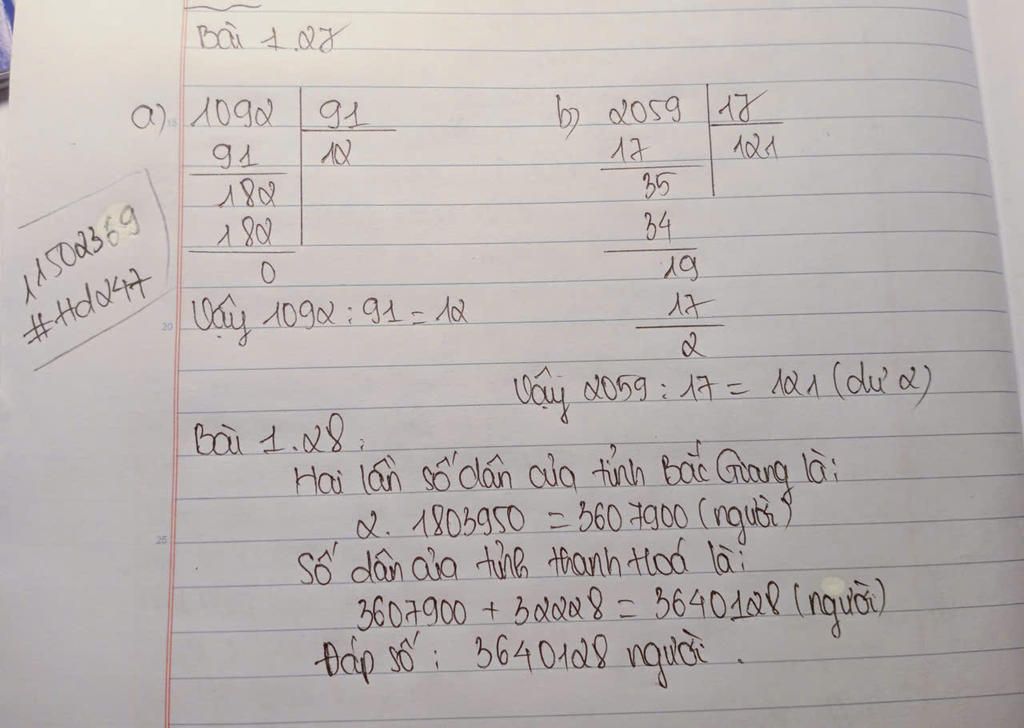 Bài 1.27
a) 1092 | 91
91 | 12
182
182
0
Vậy 1092 : 91 = 12
b) 2059 | 17
17 | 121
35
34
19
17
2
Vậy 2059 : 17 = 121 (dư 2)
11502369
#Hd247
Bài 1.28:
Hai lần số dân của tỉnh Bắc Giang là:
2. 1803950 = 3607900 (người)
Số dân của tỉnh Thanh Hoá là:
3607900 + 32228 = 3640128 (người)
Đáp số : 3640128 người.
15
20
25